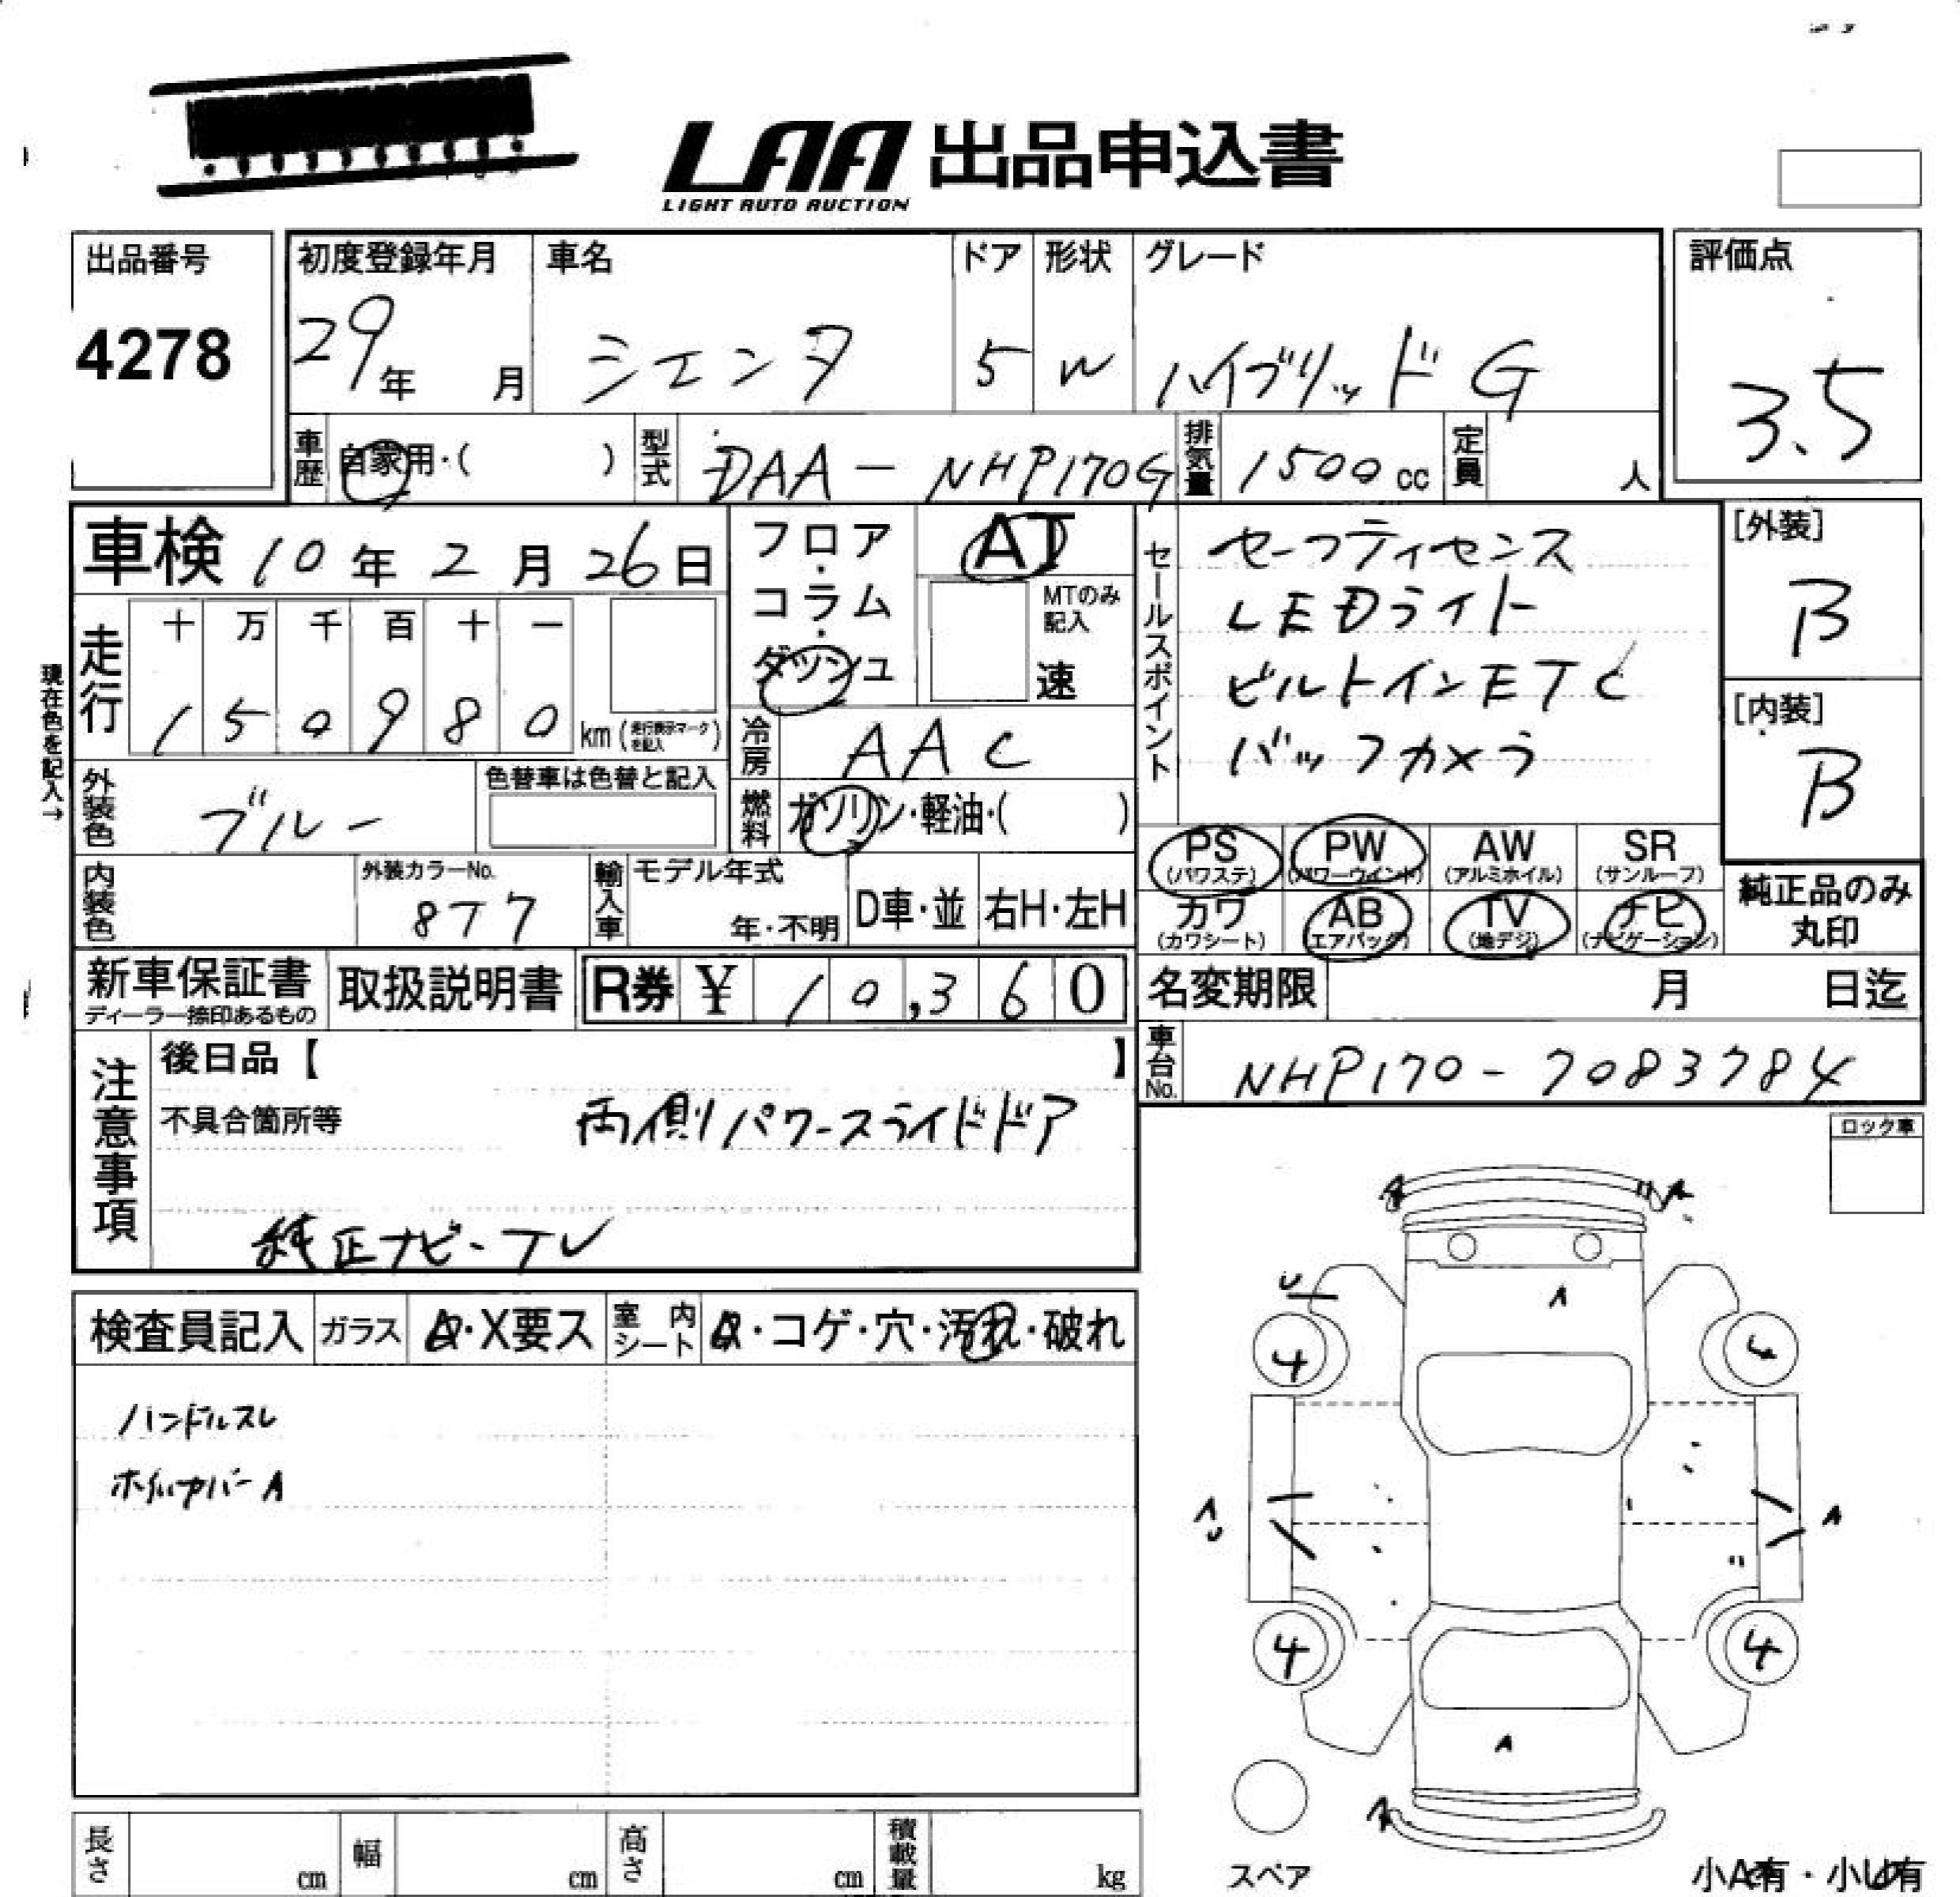 LAA 出品申込書
LIGHT AUTO AUCTION
出品番号
4278
初度登録年月
29年 月
車名
シエンタ
ドア
5
形状
W
グレード
ハイブリッド G
評価点
3.5
車歴
自家用・( )
型式
DAA-NHP170G
排気量
1500cc
定員
人
車検 10年2月26日
走行
十 万 千 百 十 一
1 5 0 9 8 0 km (走行表示マークを記入)
現在色を記入→
外装色
ブルー
色替車は色替と記入
内装色
外装カラーNo.
8T7
フロア・コラム・ダッシュ
AT
MTのみ記入
速
冷房
AAC
燃料
ガソリン・軽油・( )
輸入車
モデル年式
年・不明
D車・並
右H・左H
セールスポイント
セーフティセンス
LEDライト
ビルトインETC
バックカメラ
[外装]
B
[内装]
B
PS (パワステ)
PW (パワーウインド)
AW (アルミホイル)
SR (サンルーフ)
カワ (カワシート)
AB (エアバッグ)
TV (地デジ)
ナビ (ナビゲーション)
純正品のみ丸印
新車保証書
ディーラー捺印あるもの
取扱説明書
R券 ¥ 10,360
名変期限 月 日迄
車台No.
NHP170-7083784
注意事項
後日品【 】
不具合箇所等
両側パワースライドドア
純正ナビ・TV
ロック車
検査員記入
ガラス
A・X要ス
室内シート
A・コゲ・穴・汚れ・破れ
ハンドルスレ
ホイルカバーA
A
A
U
A
4
4
A
U
A
4
4
A
A
スペア
小A有・小U有
長さ cm
幅 cm
高さ cm
積載量 kg